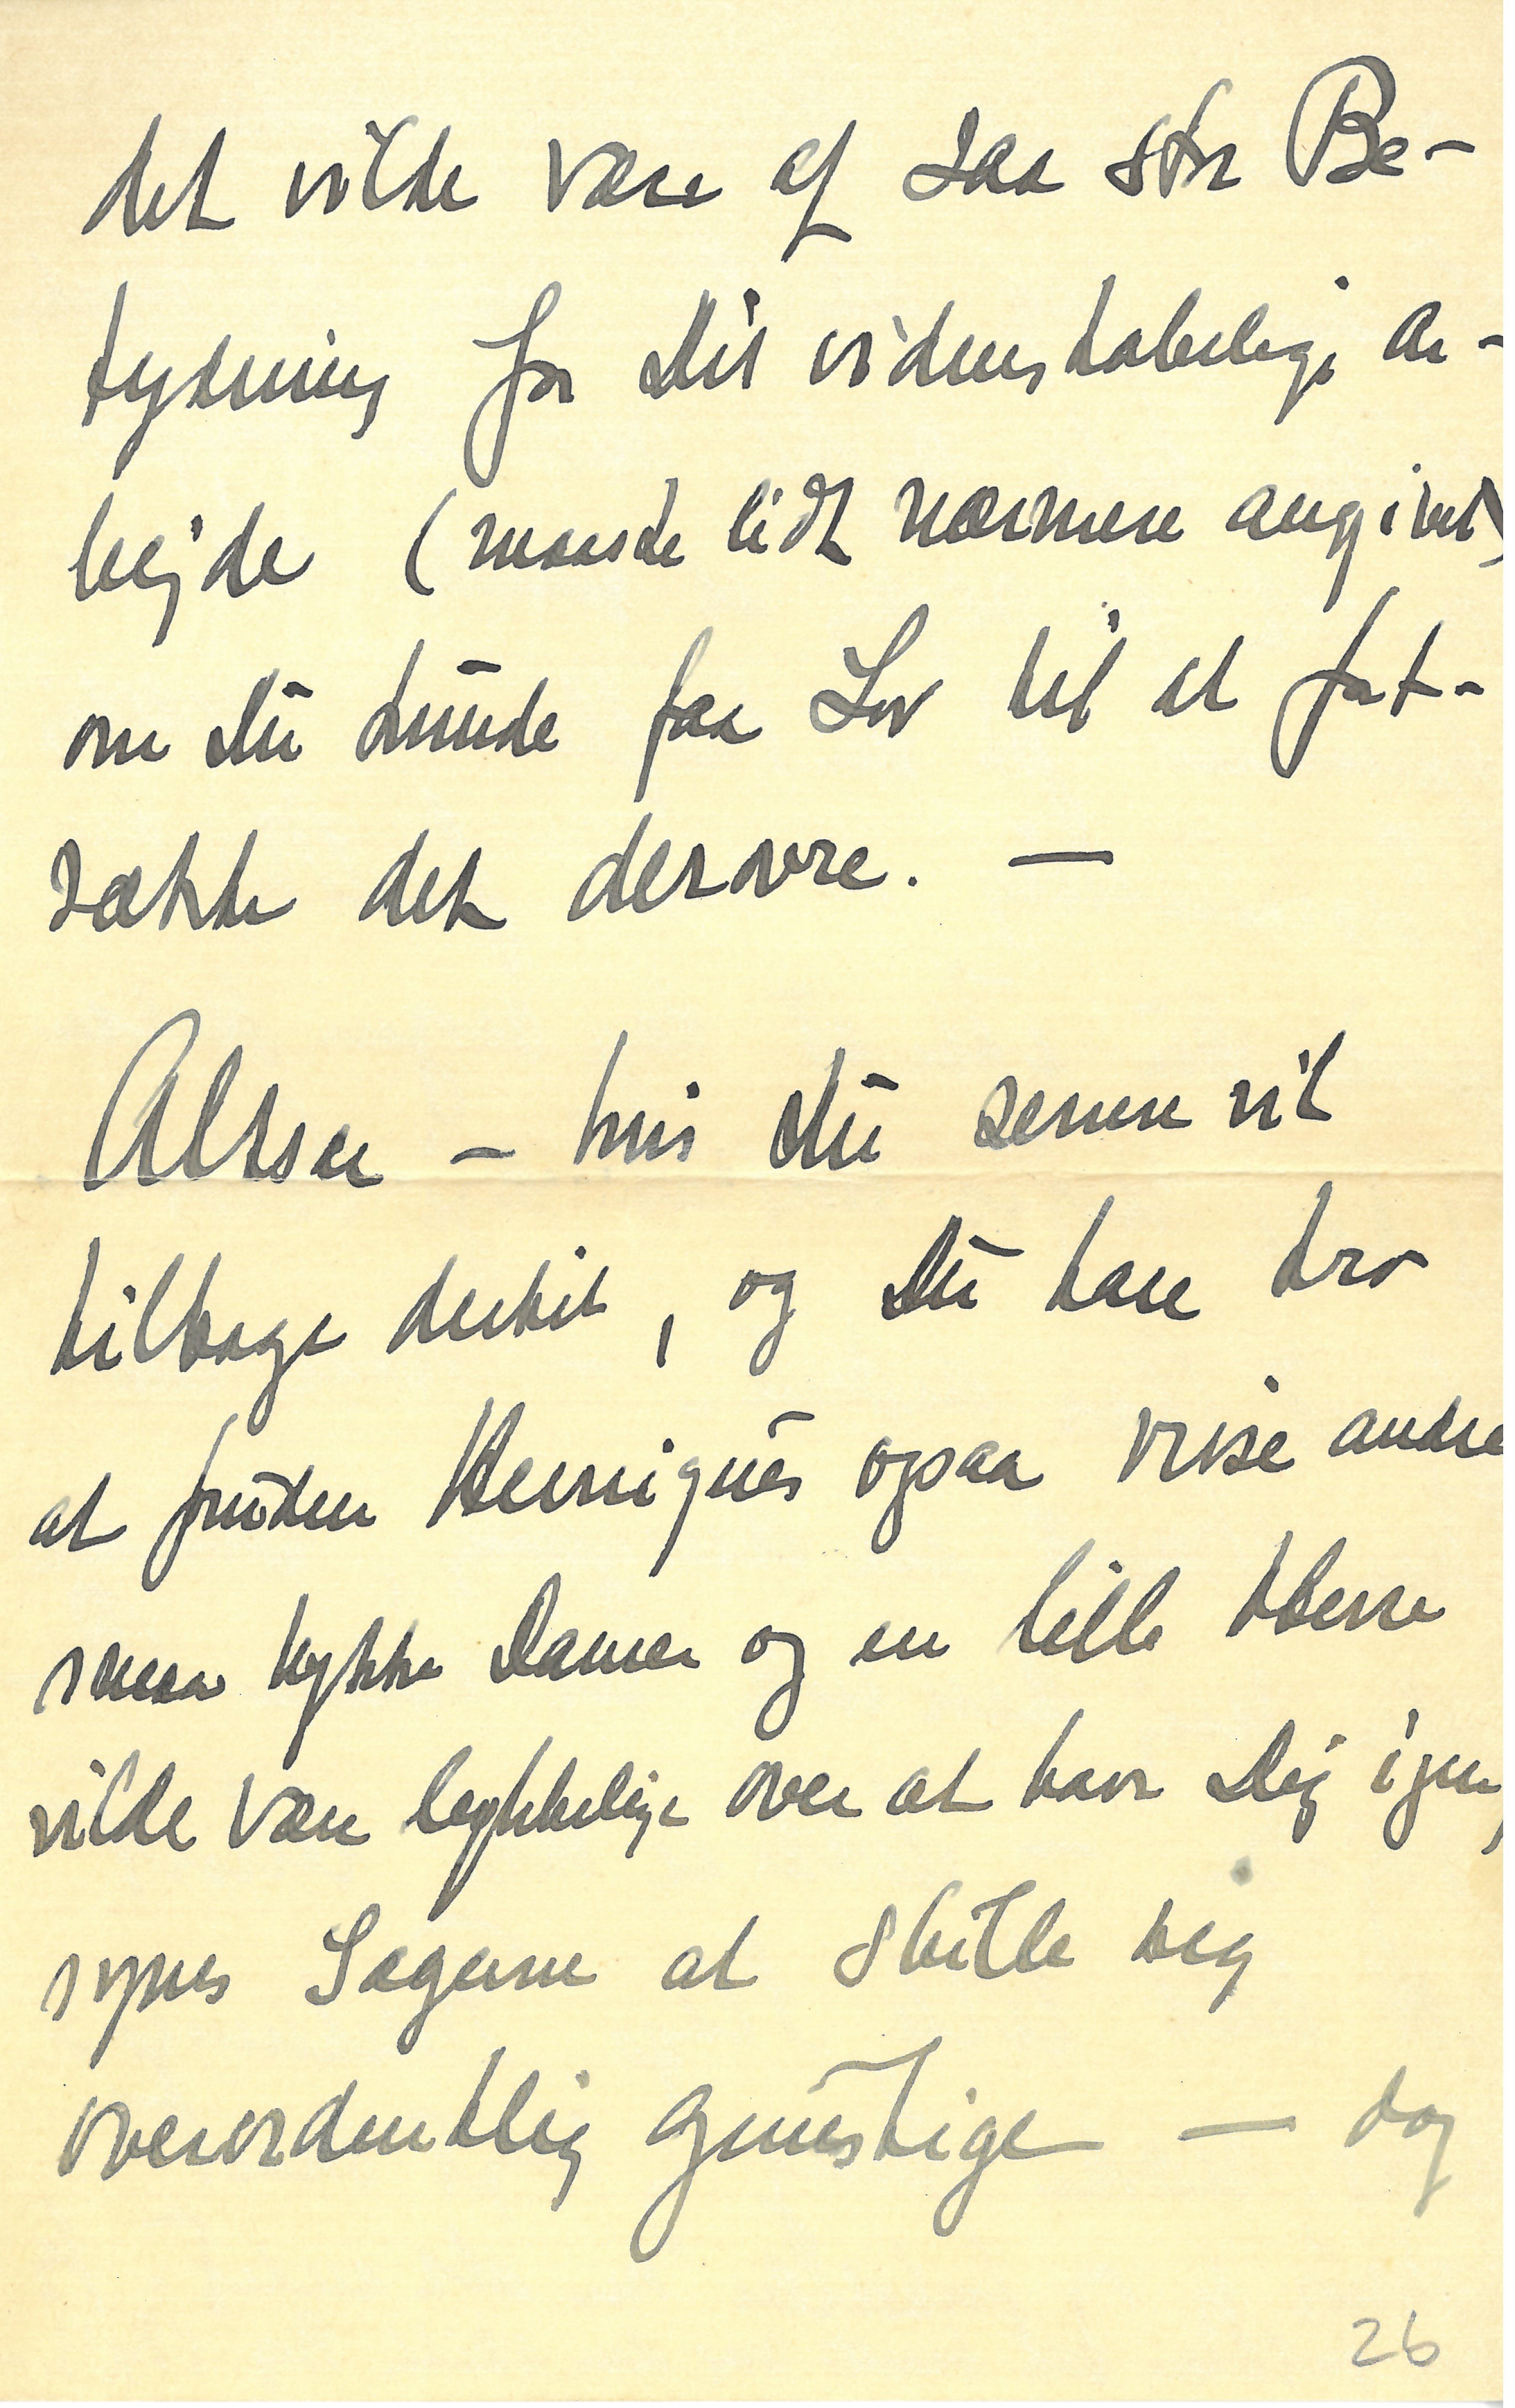 det vilde være af saa stor Be-
tydning for Dit videnskabelige Ar-
bejde (maaske lidt nærmere angivet)
om Du kunde faa Lov til at fort-
sætte det derovre. —
Altsaa – hvis Du gerne vil
tilbage dertil, og Du kan tro
at foruden Henriques ogsaa visse andre
smaa tykke Damer og en lille Herre
vilde være lykkelige over at have Dig igen,
synes Sagerne at stille sig
overordentlig gunstige — dog
26